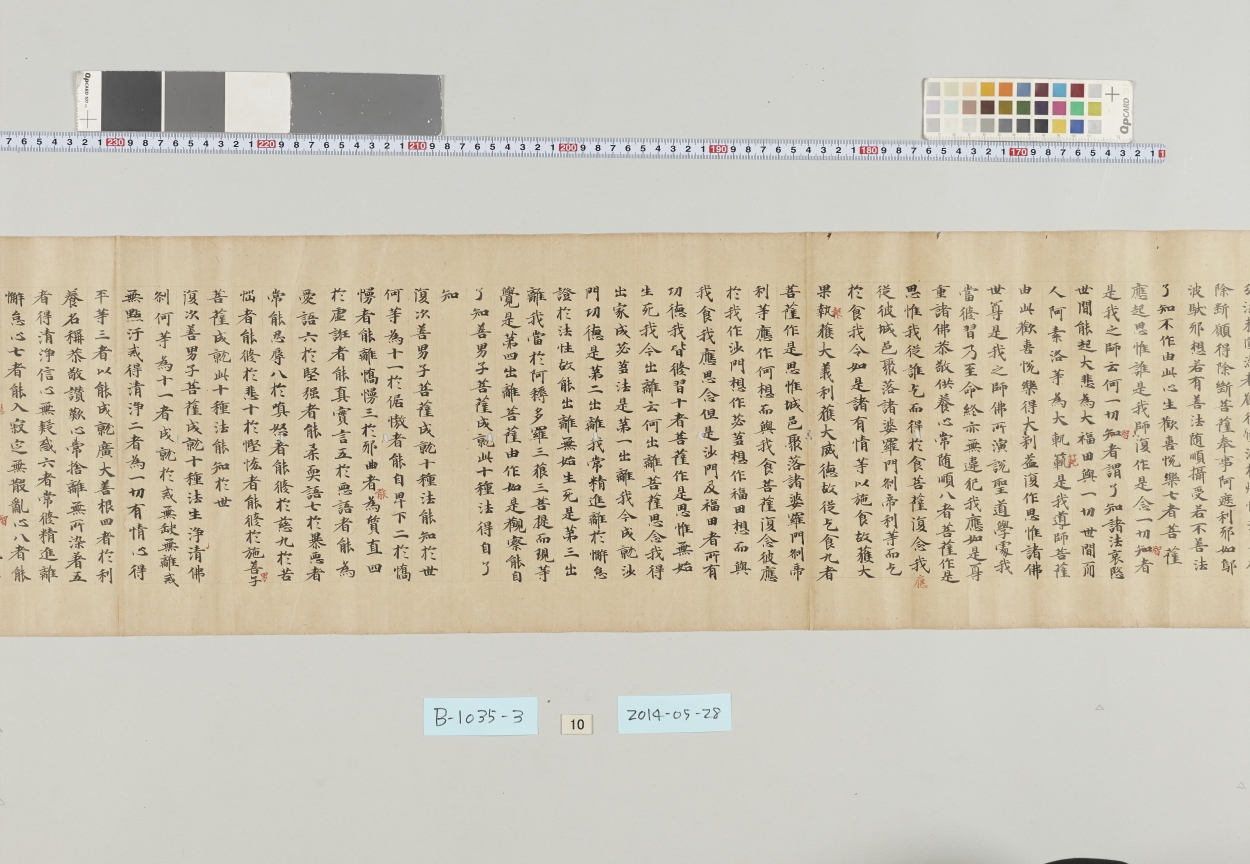 除断願得除断菩薩奉事阿遮利邪如鄔
波馱邪想若有善法随順攝受若不善法
了知不作由此心生歡喜悦樂七者菩薩
應起思惟誰是我師復作是念一切知者
是我之師云何一切知者謂了知諸法哀愍
世間能起大悲為大福田與一切世間而
人阿素洛等為大軌範是我導師菩薩
由此歡喜悦樂得大利益復作思惟諸佛
世尊是我之師佛所演說聖道學處我
當修習乃至命終亦無違犯我應如是尊
重諸佛恭敬供養心常随順八者菩薩作是
思惟我從誰乞而得於食菩薩復念我
從彼城邑聚落諸婆羅門剎帝利等而乞
於食我今如是諸有情等以施食故獲大
果報獲大義利獲大威德故從乞食九者
菩薩作是思惟城邑聚落諸婆羅門剎帝
利等應作何想而與我食菩薩復念彼應
於我作沙門想作苾蒭想作福田想而與
我食我應思念但是沙門及福田者所有
功德我皆修習十者菩薩作是思惟無始
生死我今出離云何出離菩薩思念我得
出家成苾蒭法是第一出離我今成就沙
門功德是第二出離我常精進離於懈怠
證於法性故能出離無始生死是第三出
離我當於阿耨多羅三藐三菩提而現等
覺是第四出離菩薩由作如是觀察能自
了知善男子菩薩成就此十種法得自了
知
復次善男子菩薩成就十種法能知於世
何等為十一於倨慠者能自卑下二於憍
慢者能離憍慢三於邪曲者為質直四
於虛誑者能真實言五於惡語者能為
愛語六於堅强者能柔耎語七於暴惡者
常能忍辱八於嗔怒者能修於慈九於苦
惱者能修於悲十於慳悋者能修於施善子
菩薩成就此十種法能知於世
復次善男子菩薩成就十種法生淨清佛
剎何等為十一者成就於戒無缺無離戒
無點汙戒得清淨二者為一切有情心得
平等三者以能成就廣大善根四者於利
養名稱恭敬讚歎心常捨離無所染着五
者得清淨信心無疑惑六者常修精進離
懈怠心七者能入寂定無散亂心八者能
智
範
智
應
報
能
男
B-1035-3
10
2014-05-28
QPCARD
QPCARD
230
220
210
200
190
180
170